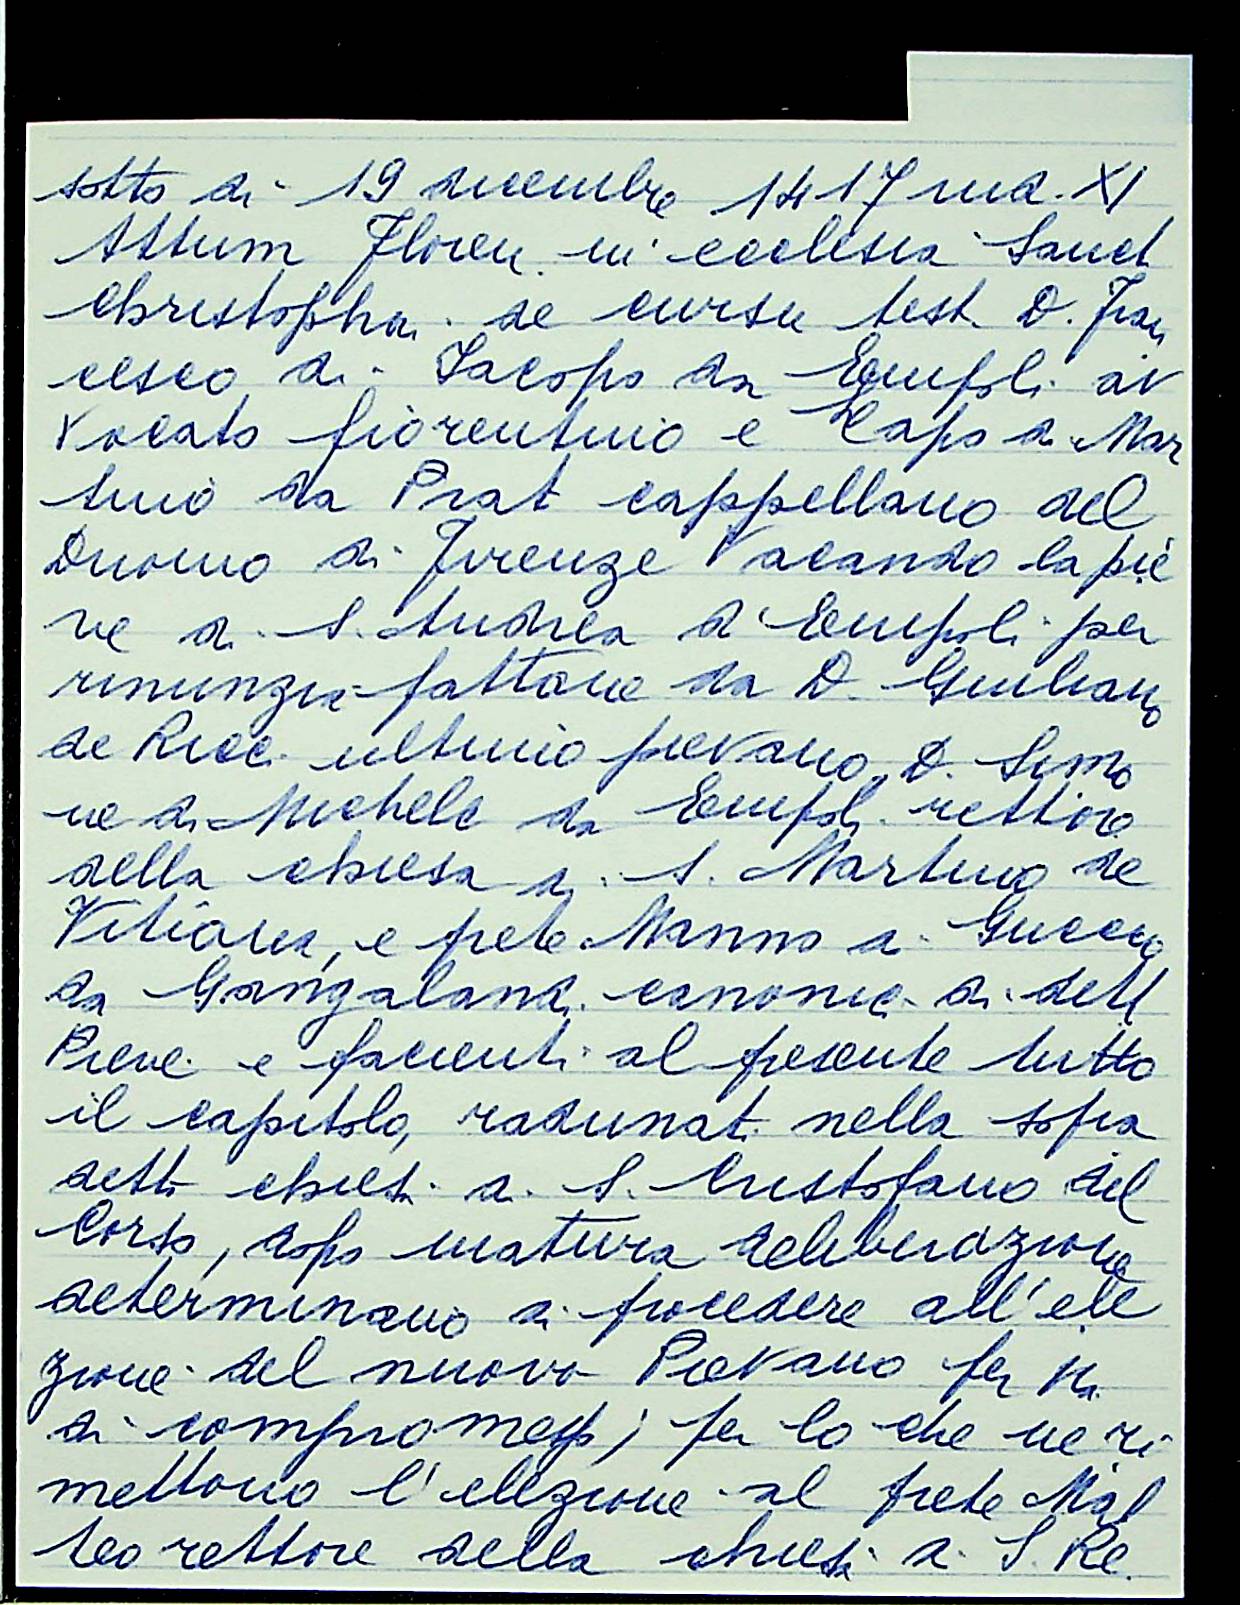 sotto di 19 dicembre 1417 ind. XI
Attum Floren. in ecclesia Sanct
Christophori de cursu test. D. Fran
cesco di Iacopo da Empoli av
vocato fiorentino e Lapo di Mar
tino da Prat cappellano del
Duomo di Firenze Vacando la pie
ve di S. Andrea d'Empoli per
rinunzia fattane da D. Giuliano
de Ricci ultimo pievano, D. Simo
ne di Michele da Empoli rettore
della chiesa di S. Martino de
Vitiana, e prete Nanno di Guccio
da Gangalandi canonici di dett
Pieve e facienti al presente tutto
il capitolo, radunati nella sopra
dett chiesa di S. Cristofano del
Corso, dopo matura deliberazione
determinano di procedere all'ele
zione del nuovo Pievano per via
di compromesso; per lo che ne ri
mettono l'elezione al prete Mat
teo rettore della chiesa di S. Re.